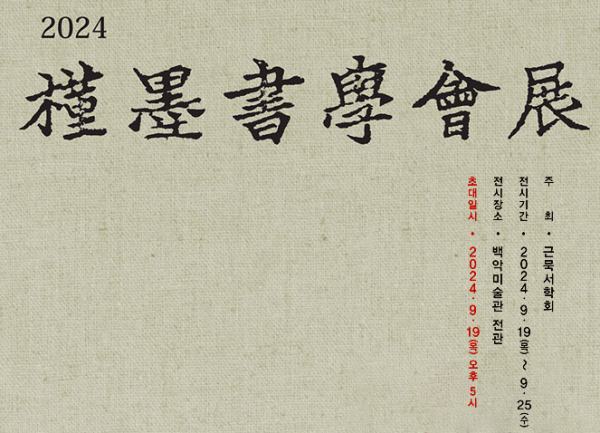 2024
槿墨書學會展
주 최 • 근묵서학회
전시기간 • 2024·9·19(목)~9·25(수)
전시장소 • 백악미술관 전관
초대일시 • 2024·9·19(목) 오후 5시